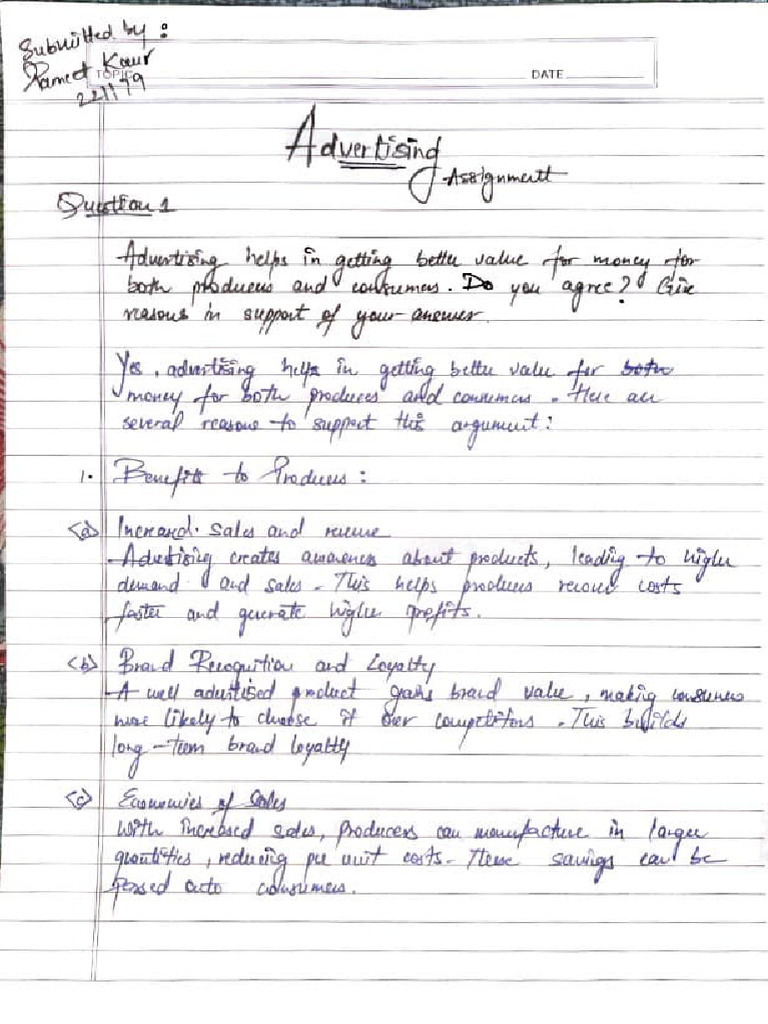 Submitted by :
Kaur
22/1179
TOPIC
DATE
Advertising
Assignment
Question 1
Advertising helps in getting better value for money for
both producers and consumers. Do you agree? Give
reasons in support of your answer.
Yes, advertising helps in getting better value for both
money for both producers and consumers. There are
several reasons to support this argument:
1. Benefits to Producers :
<a> Increased. Sales and revenue
Advertising creates awareness about products, leading to higher
demand and sales. This helps producers recover costs
faster and generate higher profits.
<b> Brand Recognition and Loyalty
A well advertised product gains brand value, making consumers
more likely to choose it over competitors. This builds
long-term brand loyalty
<c> Economies of Sales
With increased sales, producers can manufacture in larger
quantities, reducing per unit costs. These savings can be
passed onto consumers.